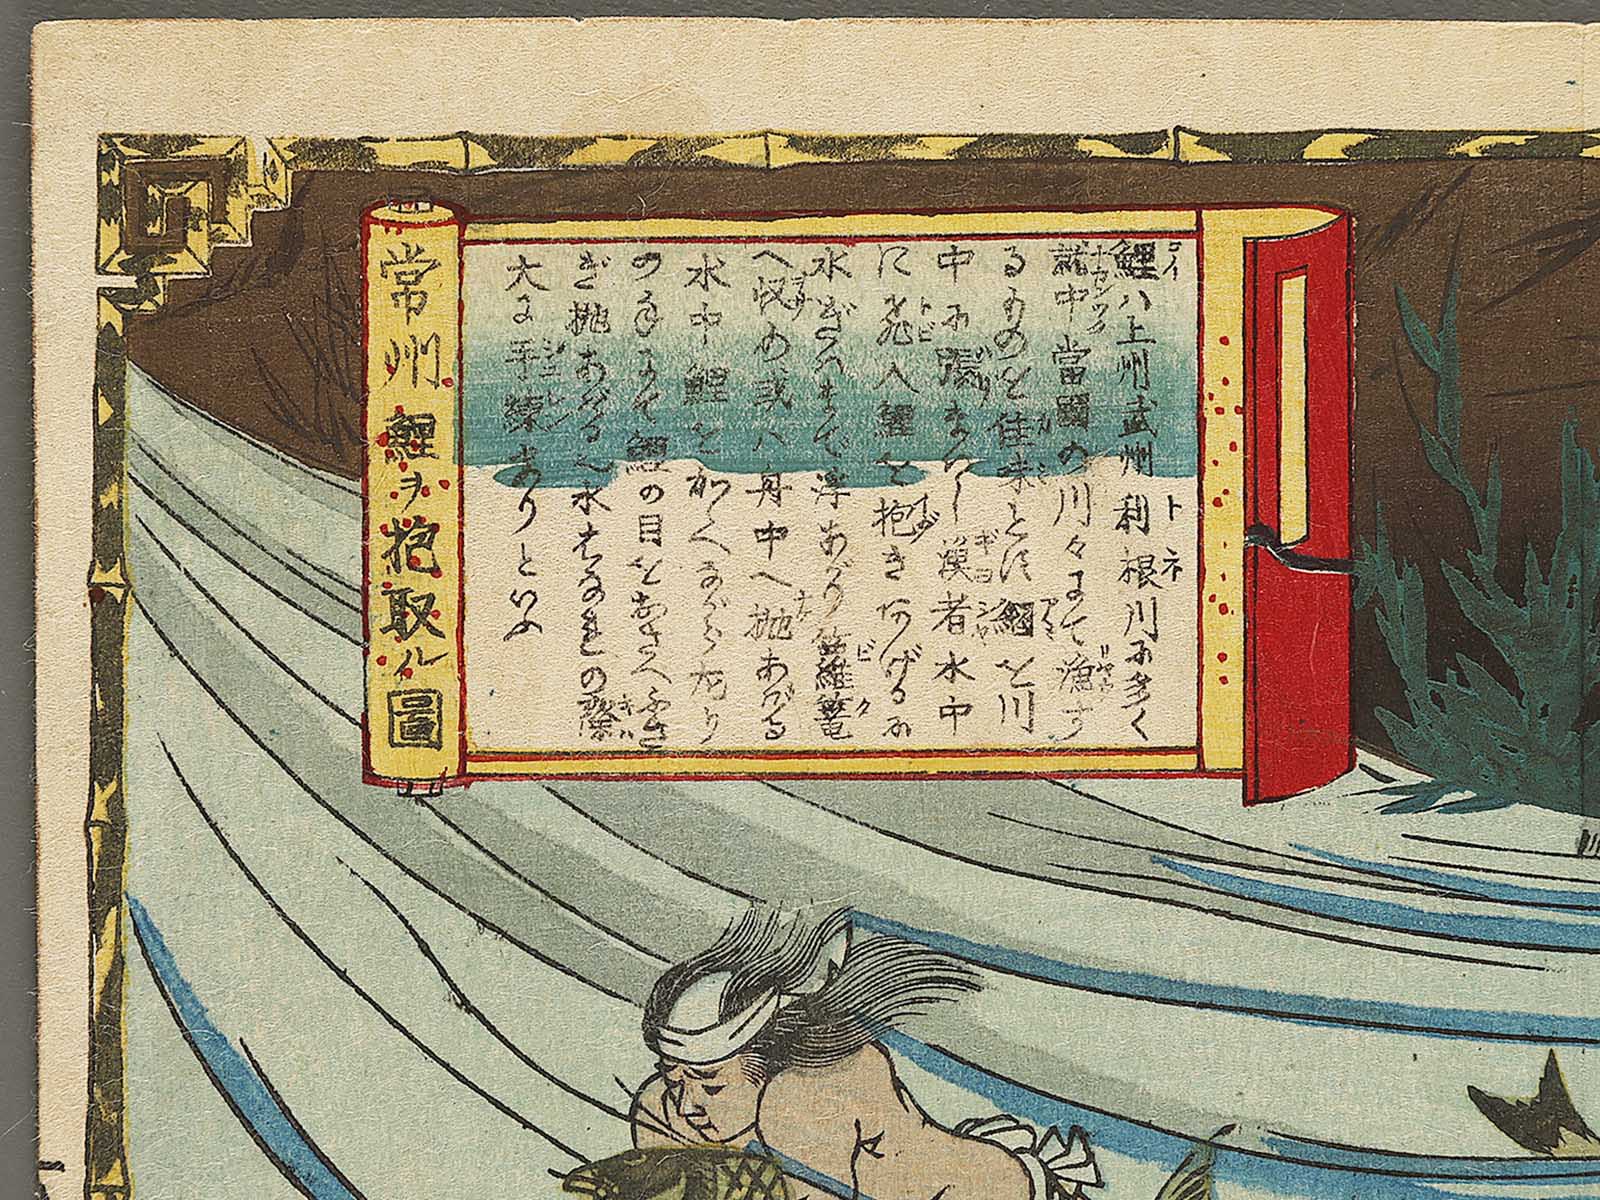 鯉ハ上州武州利根川に多く
就中當國の川々にて漁す
るものを佳味とす 網を川
中に張まはし漁者水中
に飛入鯉を抱きあげるに
水ぎはまで浮あがり
へ収め或ハ舟中へ抛あげる
水中鯉を
の手にて鯉の目をおさへふさ
ぎ抛あげる也水はなれの際
大に手練ありといふ
常州鯉ヲ抱取ル圖